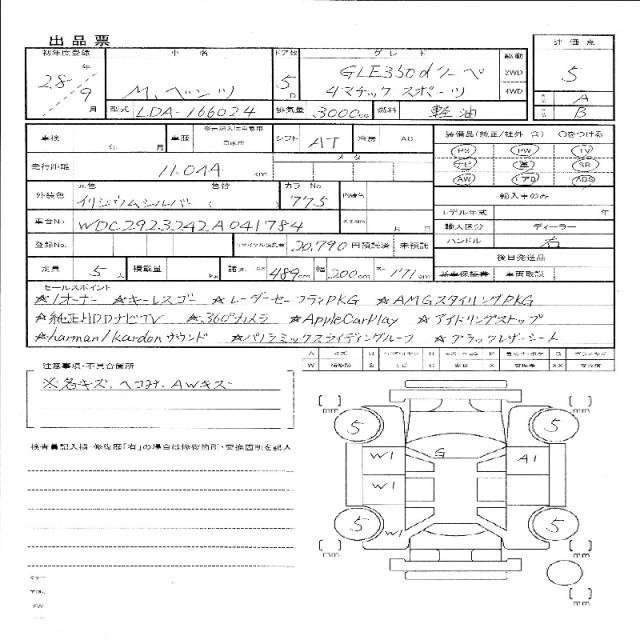 出品票
初年度登録 車名 ドア数 グレード 駆動 評価点
28年 9月 M.ベンツ 5D GLE350dクーペ 2WD 5
4マチック スポーツ 4WD A
型式 LDA-166024 排気量 3000cc 燃料 軽油 B
車検 車歴 シフト AT 冷房 AC 装備品(純正/社外 ☆) ○をつける
PS PW TV
走行距離 11.044 km ナビ 革 SR
AW エアB ABS
外装色 元色 色替 カラーNo 内装色
イリジウムシルバー ( 775 輸入車のみ
モデル年式 年
車台No. WDC2923242A041784 輸入区分 ディーラー
登録No. リサイクル預託金 20,790 円預託済 未預託 ハンドル 右
後日発送品
定員 5人 積載量 Kg 諸元 長さ 484cm 幅 200cm 高さ 171cm 保証書 車両取説
セールスポイント
☆1オーナー ☆キーレスゴー ☆レーダーセーフティPKG ☆AMGスタイリングPKG
☆純正HDDナビTV ☆360°カメラ ☆AppleCarPlay ☆アイドリングストップ
☆harman/kardonサウンド ☆パノラミックスライディングルーフ ☆ブラックレザーシート
注意事項・不具合箇所
※各キズ、ヘコミ、AWキズ
検査員記入欄 修復歴「有」の場合は修復箇所・交換箇所を記入
[ ]mm [ ]mm
5 5
W1 G A1
W1
5 W1 5
[ ]mm [ ]mm
[ ]mm